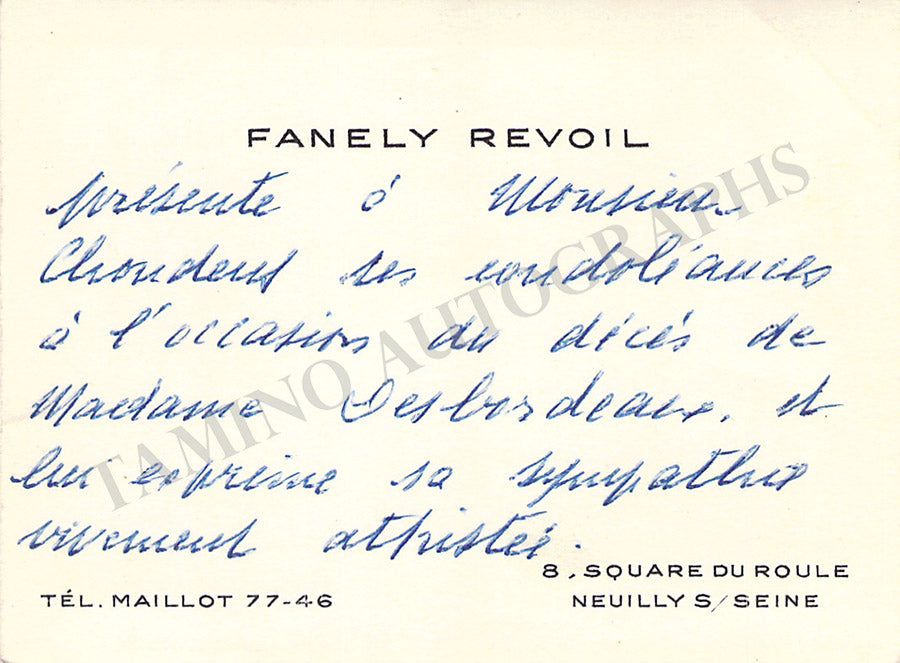 FANELY REVOIL
présente à Monsieur
Choudens ses condoléances
à l'occasion du décés de
Madame Desbordeaux, et
lui exprime sa sympathie
vivement attristée.
8, SQUARE DU ROULE
TÉL. MAILLOT 77-46
NEUILLY S/SEINE
TAMINO AUTOGRAPHS